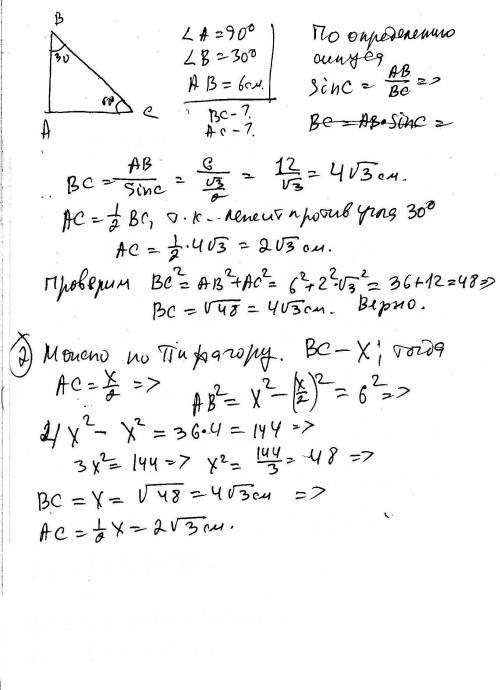 B
30
60
A
C
∠A=90°
∠B=30°
AB=6см.
BC-?
AC-?
По определению
синуса
SinC = AB/BC =>
BC = AB·SinC =
BC = AB/SinC = 6/(√3/2) = 12/√3 = 4√3 см.
AC = 1/2 BC, т.к. лежит против угла 30°
AC = 1/2·4√3 = 2√3 см.
Проверим BC² = AB²+AC² = 6²+2²·√3² = 36+12=48=>
BC = √48 = 4√3 см. Верно.
2) Можно по Пифагору. BC-X; тогда
AC = x/2 => AB² = x² - (x/2)² = 6² =>
4x² - x² = 36·4 = 144 =>
3x² = 144 => x² = 144/3 = 48 =>
BC = x = √48 = 4√3 см =>
AC = 1/2 x = 2√3 см.